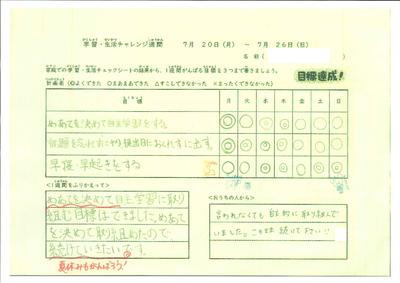 学習・生活チャレンジ週間　7月20日(月)　～　7月26日(日)
名前(
学校での学習・生活チェックシートの結果から、1週間がんばる目標を3つまで書きましょう。
目標達成!
◎よくできた　○まあまあできた　△すこしできなかった　×まったくできなかった
目標　月　火　水　木　金　土　日
めあてを決めて自主学習をする。　◎　◎　◎　◎　◎　◎　◎
宿題を忘れずにやり提出日におくれずに出す。
早寝・早起きをする
<1週間をふりかえって>
めあてを決めて自主学習に取り
組む目標はできました。めあて
を決めて取り組めたので、
続けていきたいです。
夏休みもがんばろう!
<おうちの人から>
言われなくても自主的に取り組んで
いました。このまま続けて下さい!!